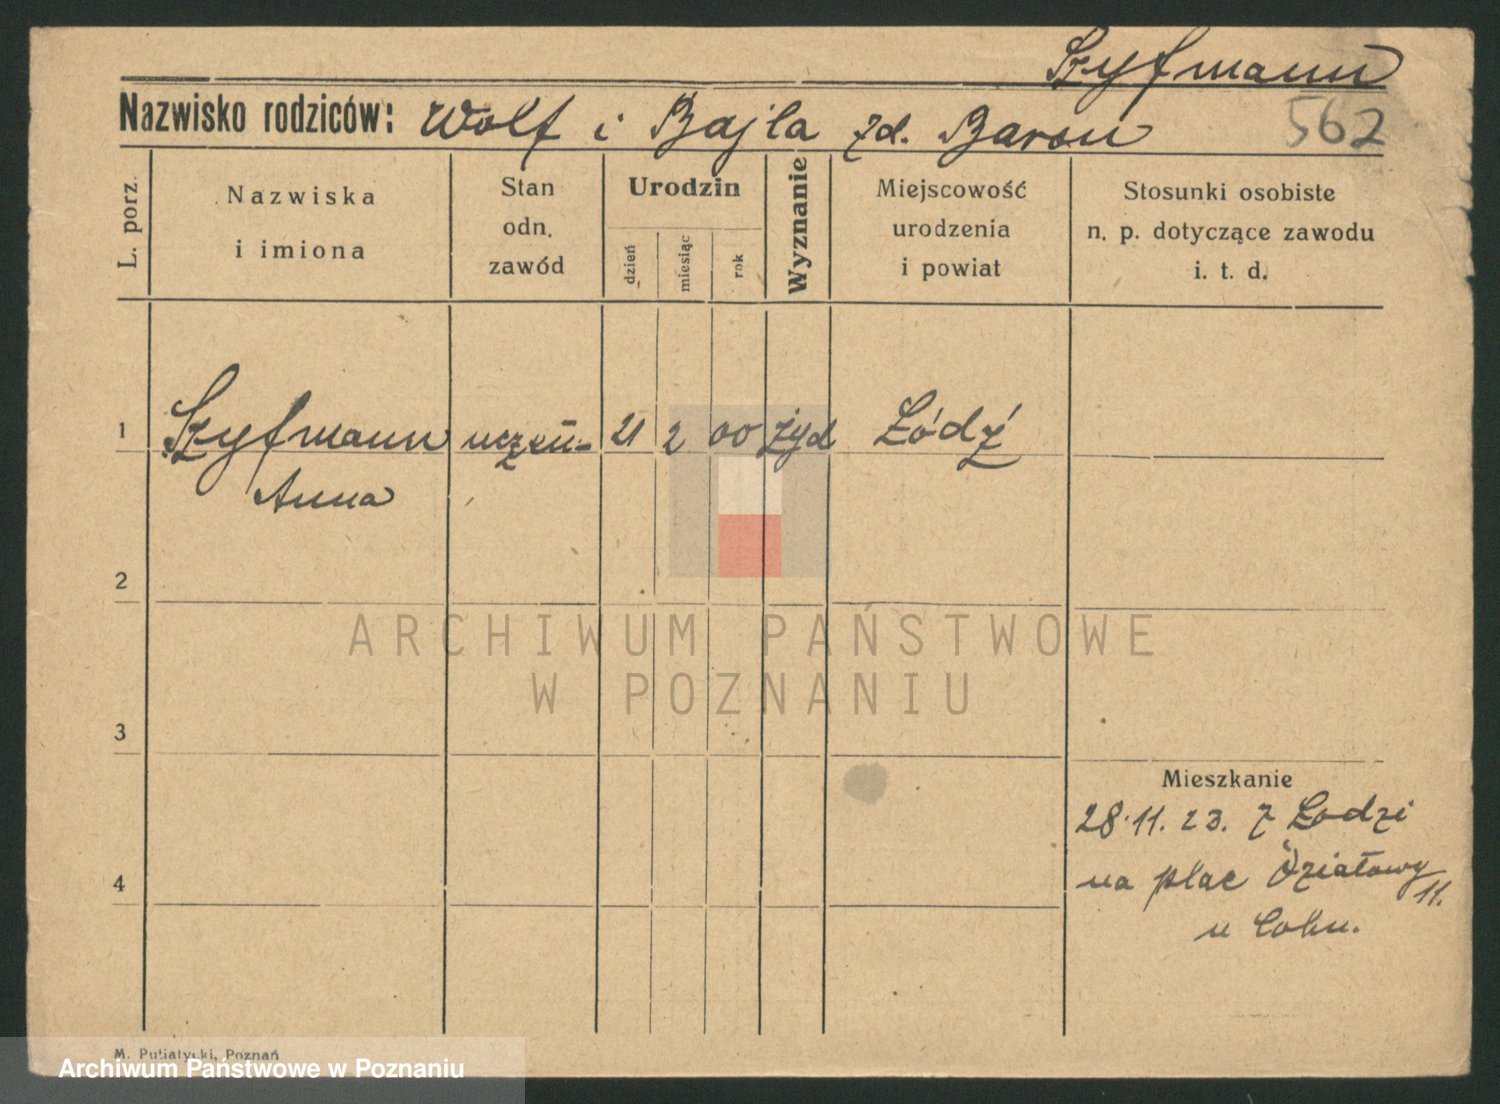 Szyfmann
Nazwisko rodziców: Wolf i Bajla zd. Baron
562
L. porz.
Nazwiska
i imiona
Stan
odn.
zawód
Urodzin
dzień
miesiąc
rok
Wyznanie
Miejscowość
urodzenia
i powiat
Stosunki osobiste
n. p. dotyczące zawodu
i. t. d.
1 Szyfmann uczeń- 21 2 00 żyd Łódź
Anna
2
ARCHIWUM PAŃSTWOWE
W POZNANIU
3
Mieszkanie
28.11.23. z Łodzi
na plac Działowy
11.
4
u Cohn.
M. Putiatycki, Poznań
Archiwum Państwowe w Poznaniu